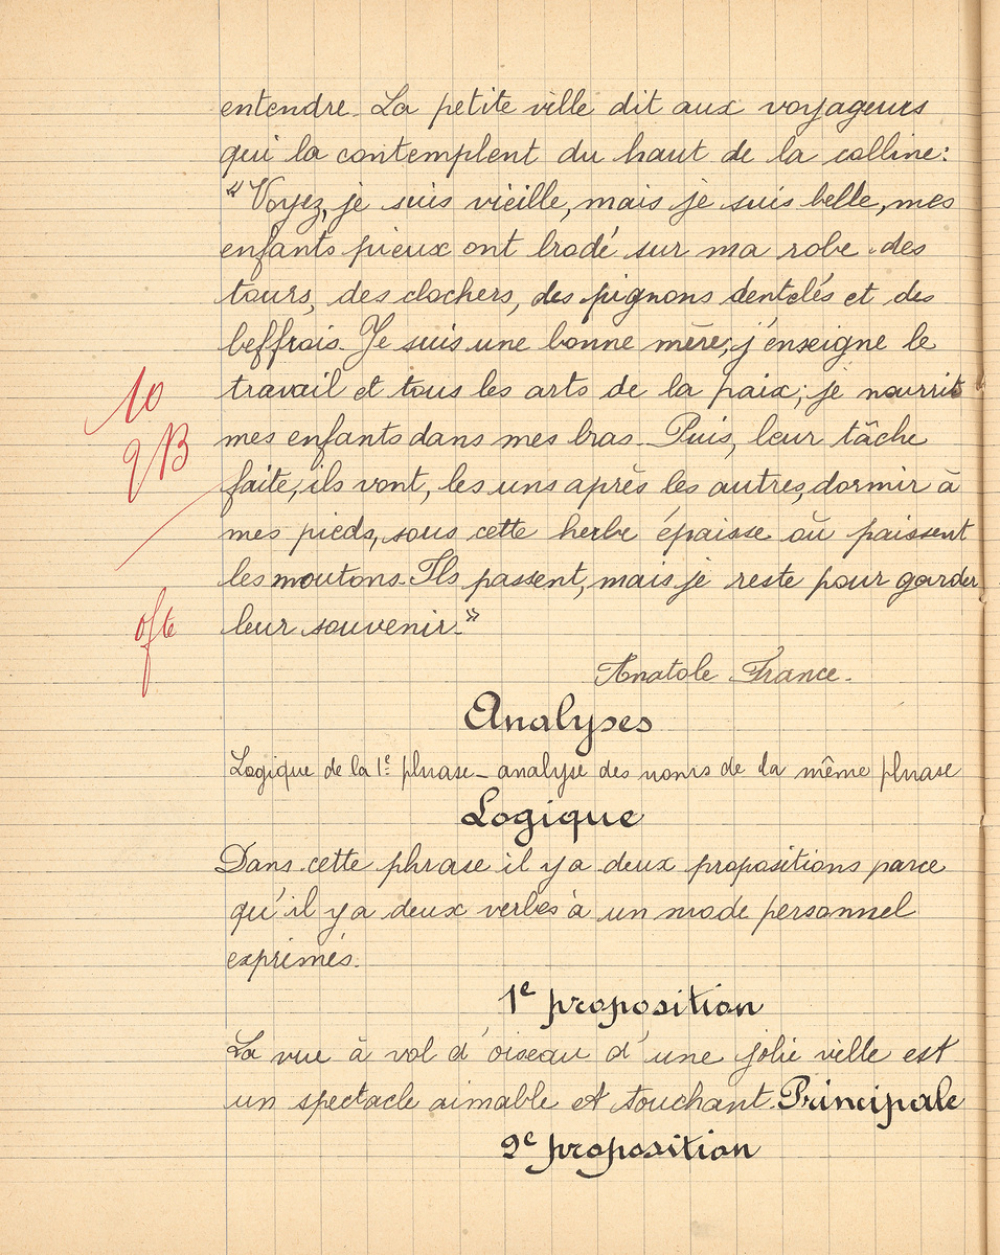 entendre. La petite ville dit aux voyageurs
qui la contemplent du haut de la colline:
"Voyez, je suis vieille, mais je suis belle, mes
enfants pieux ont brodé sur ma robe des
tours, des clochers, des pignons dentelés et des
beffrois. Je suis une bonne mère; j'enseigne le
travail et tous les arts de la paix; je nourris
mes enfants dans mes bras. Puis, leur tâche
faite, ils vont, les uns après les autres, dormir à
mes pieds, sous cette herbe épaisse où paissent
les moutons. Ils passent, mais je reste pour garder
leur souvenir."
10
9 B
Anatole France.
Analyses
Logique de la 1e phrase - analyse des noms de la même phrase
Logique
Dans cette phrase il y a deux propositions parce
qu'il y a deux verbes à un mode personnel
exprimés.
1e proposition
La vue à vol d'oiseau d'une jolie ville est
un spectacle aimable et touchant. Principale
2e proposition